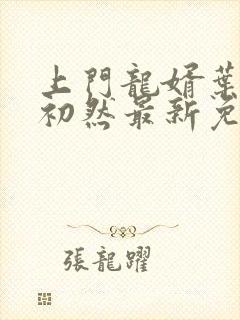 上門龍婿葉
初然最新免
張龍躍